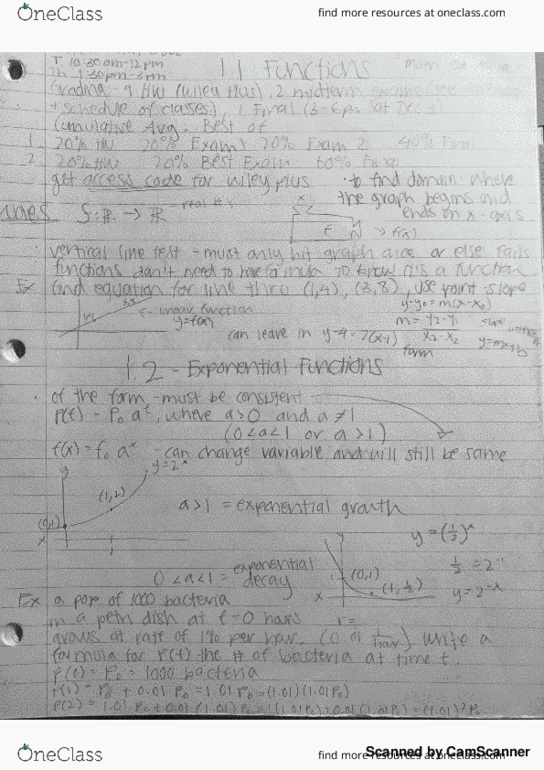 OneClass find more resources at oneclass.com
T 10:30am-12pm
Th 1:30pm-3pm
1.1 Functions
Grading - HW (Wiley Plus), 2 midterm
+ schedule of classes), 1 Final (3-6pm Sat Dec 3)
Cumulative Avg: Best of
1. 20% HW 20% Exam 1 20% Exam 2 40% Final
2. 20% HW 20% Best Exam 60% Final
get access code for wiley plus
· to find domain where
the graph begins and
ends on x-axis
S: ℝ → ℝ real #s
x f → f(x)
· vertical line test - must only hit graph once or else fails
functions don't need to have formula to know it's a function
Ex find equation for line thru (1,4), (3,8), use point slope
y-y₀ = m(x-x₀)
linear function
y=f(x)
can leave in y-4=2(x-1) form
y=mx+b
1.2 - Exponential Functions
· of the form - must be consistent
P(t) = P₀ aᵗ, where a>0 and a≠1
(0<a<1 or a>1)
f(x) = f₀ aˣ - can change variable and will still be same
y y=2ˣ
(1,2)
(0,1)
x
a>1 = exponential growth
y = (½)ˣ
½ = 2⁻¹
y = 2⁻ˣ
0<a<1 = exponential
decay
y
(0,1)
(1,½)
x
Ex a pop of 1000 bacteria
in a petri dish at t=0 hours r=
grows at rate of 1% per hour. write a
formula for P(t) the # of bacteria at time t.
P(0) = P₀ = 1000 bacteria
P(1) = P₀ + 0.01 P₀ = 1.01 P₀
P(2) = 1.01 P₀ + 0.01 (1.01 P₀) = (1.01)² P₀
OneClass find more resources at oneclass.com
Scanned by CamScanner